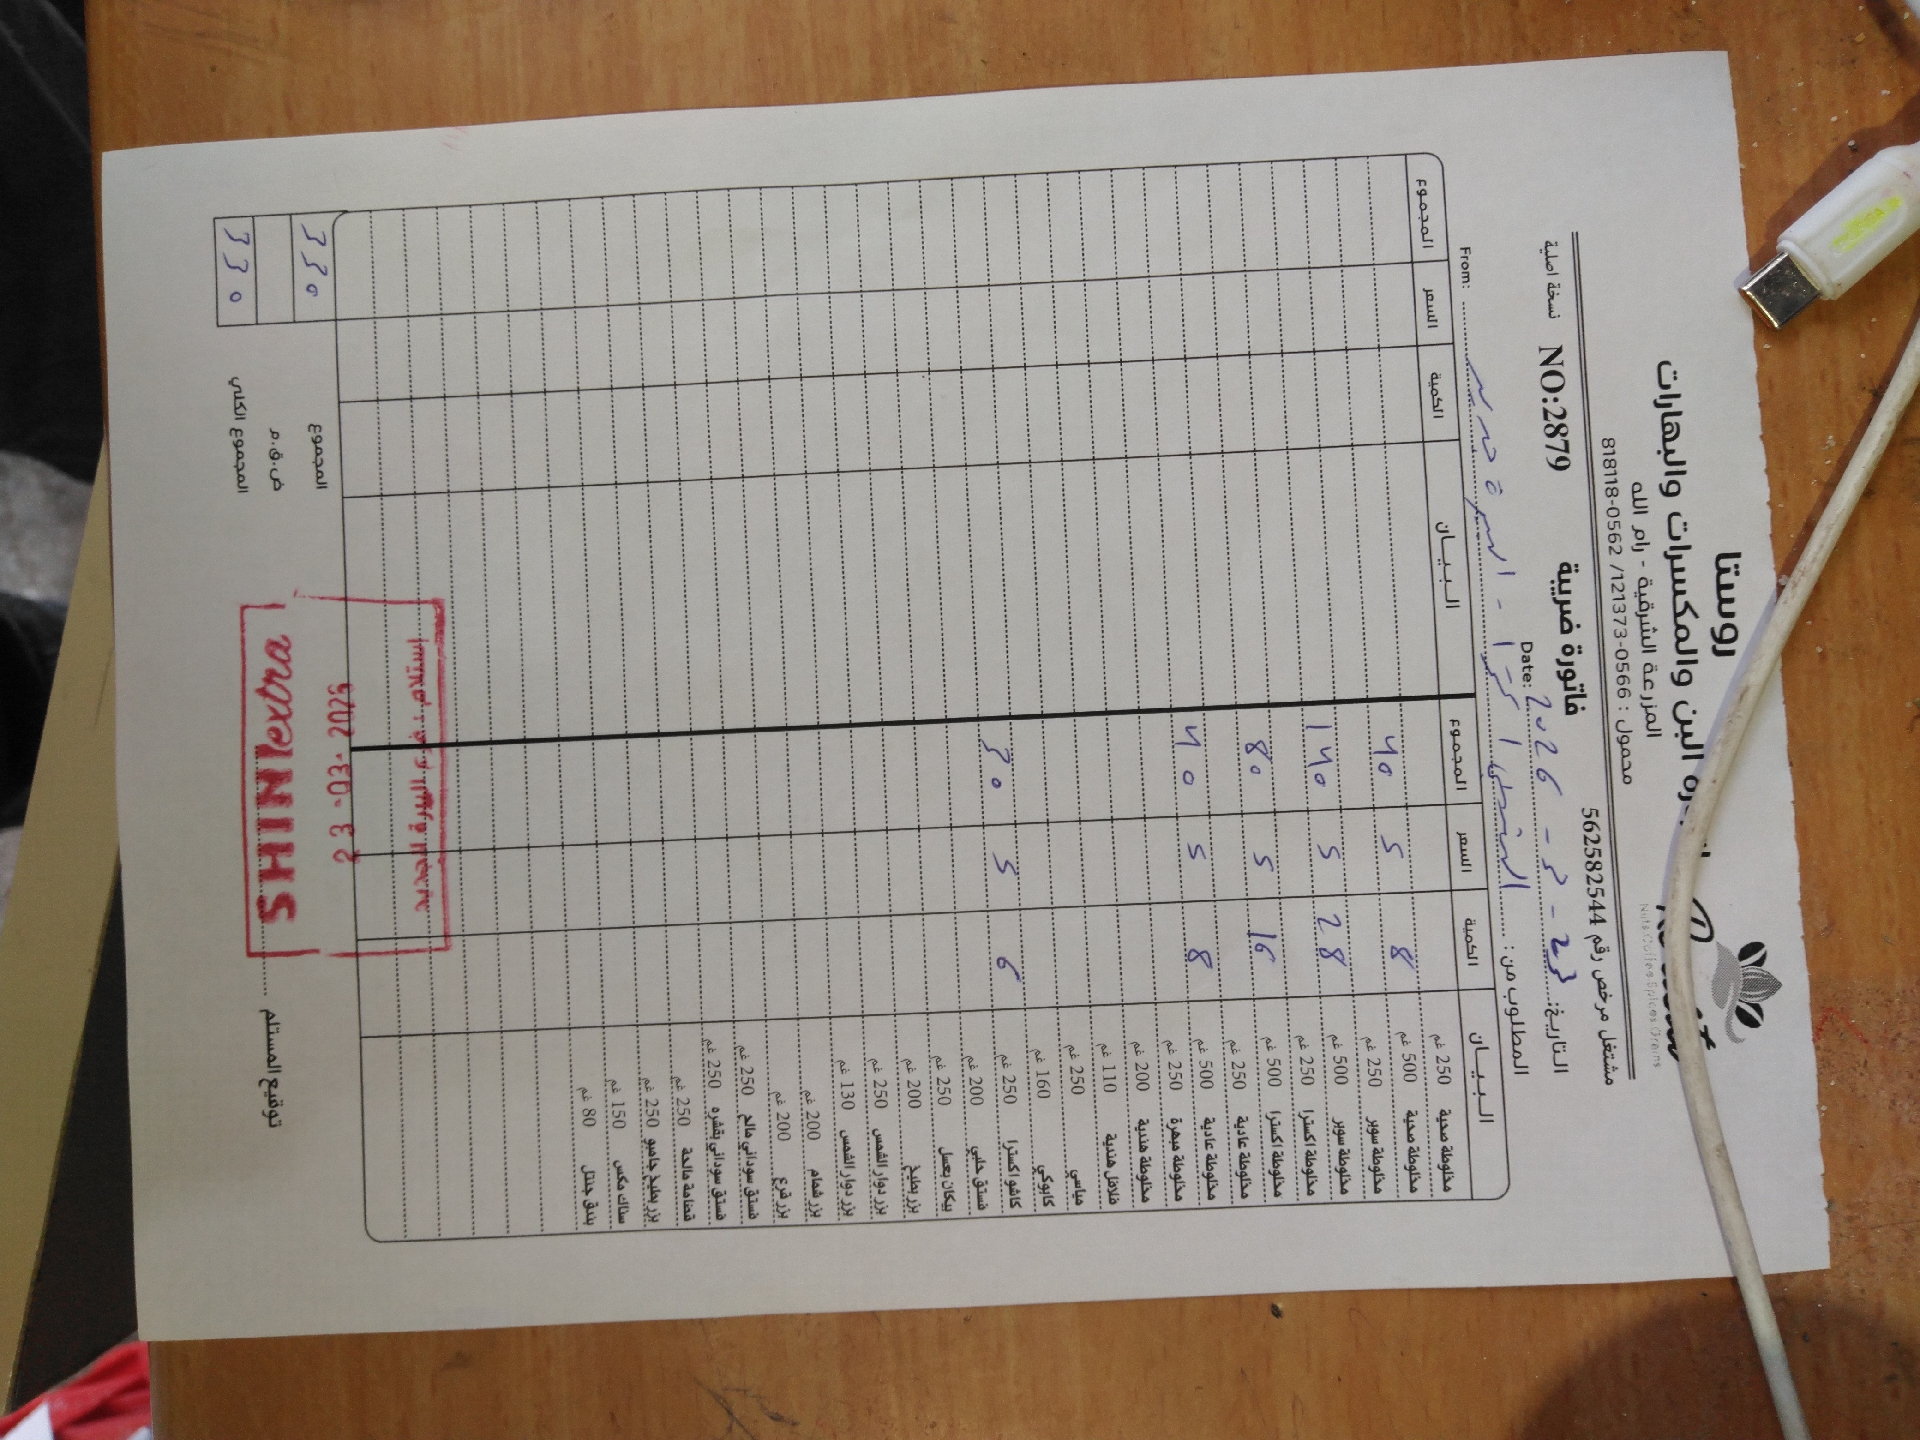 روستا
البن والمكسرات والبهارات
المزرعة الشرقية - رام الله
محمول : 0566-121373/ 0562-818118
Nuts Coffee Spices Grains
مشتغل مرخص رقم 562582544
فاتورة ضريبة NO:2879 نسخة اصلية
التاريخ: 23 - 3 - 2026 Date:
المطلوب من: From:
البيــان الكمية السعر المجموع البيــان الكمية السعر المجموع
مخلوطة صحية 250 غم
مخلوطة صحية 500 غم 8 5 40
مخلوطة سوبر 250 غم
مخلوطة سوبر 500 غم 28 5 140
مخلوطة اكسترا 250 غم
مخلوطة اكسترا 500 غم 16 5 80
مخلوطة عادية 250 غم
مخلوطة عادية 500 غم 8 5 40
مخلوطة مبهرة 250 غم
مخلوطة هندية 200 غم
فلافل هندية 110 غم
مياسي 250 غم
كابوكي 160 غم
كاشو اكسترا 250 غم 6 5 30
فستق حلبي 200 غم
بيكان بعسل 250 غم
بزر بطيخ 200 غم
بزر دوار الشمس 250 غم
بزر دوار الشمس 130 غم
بزر شمام 200 غم
بزر قرع 200 غم
فستق سوداني مالح 250 غم
فستق سوداني بقشره 250 غم
قضامة مالحة 250 غم
بزر بطيخ جامبو 250 غم
سناك مكس 150 غم
بندق جنتل 80 غم
المجموع 330
ض.ق.م
المجموع الكلي 330
23-03-2026
SHINI extra
توقيع المستلم